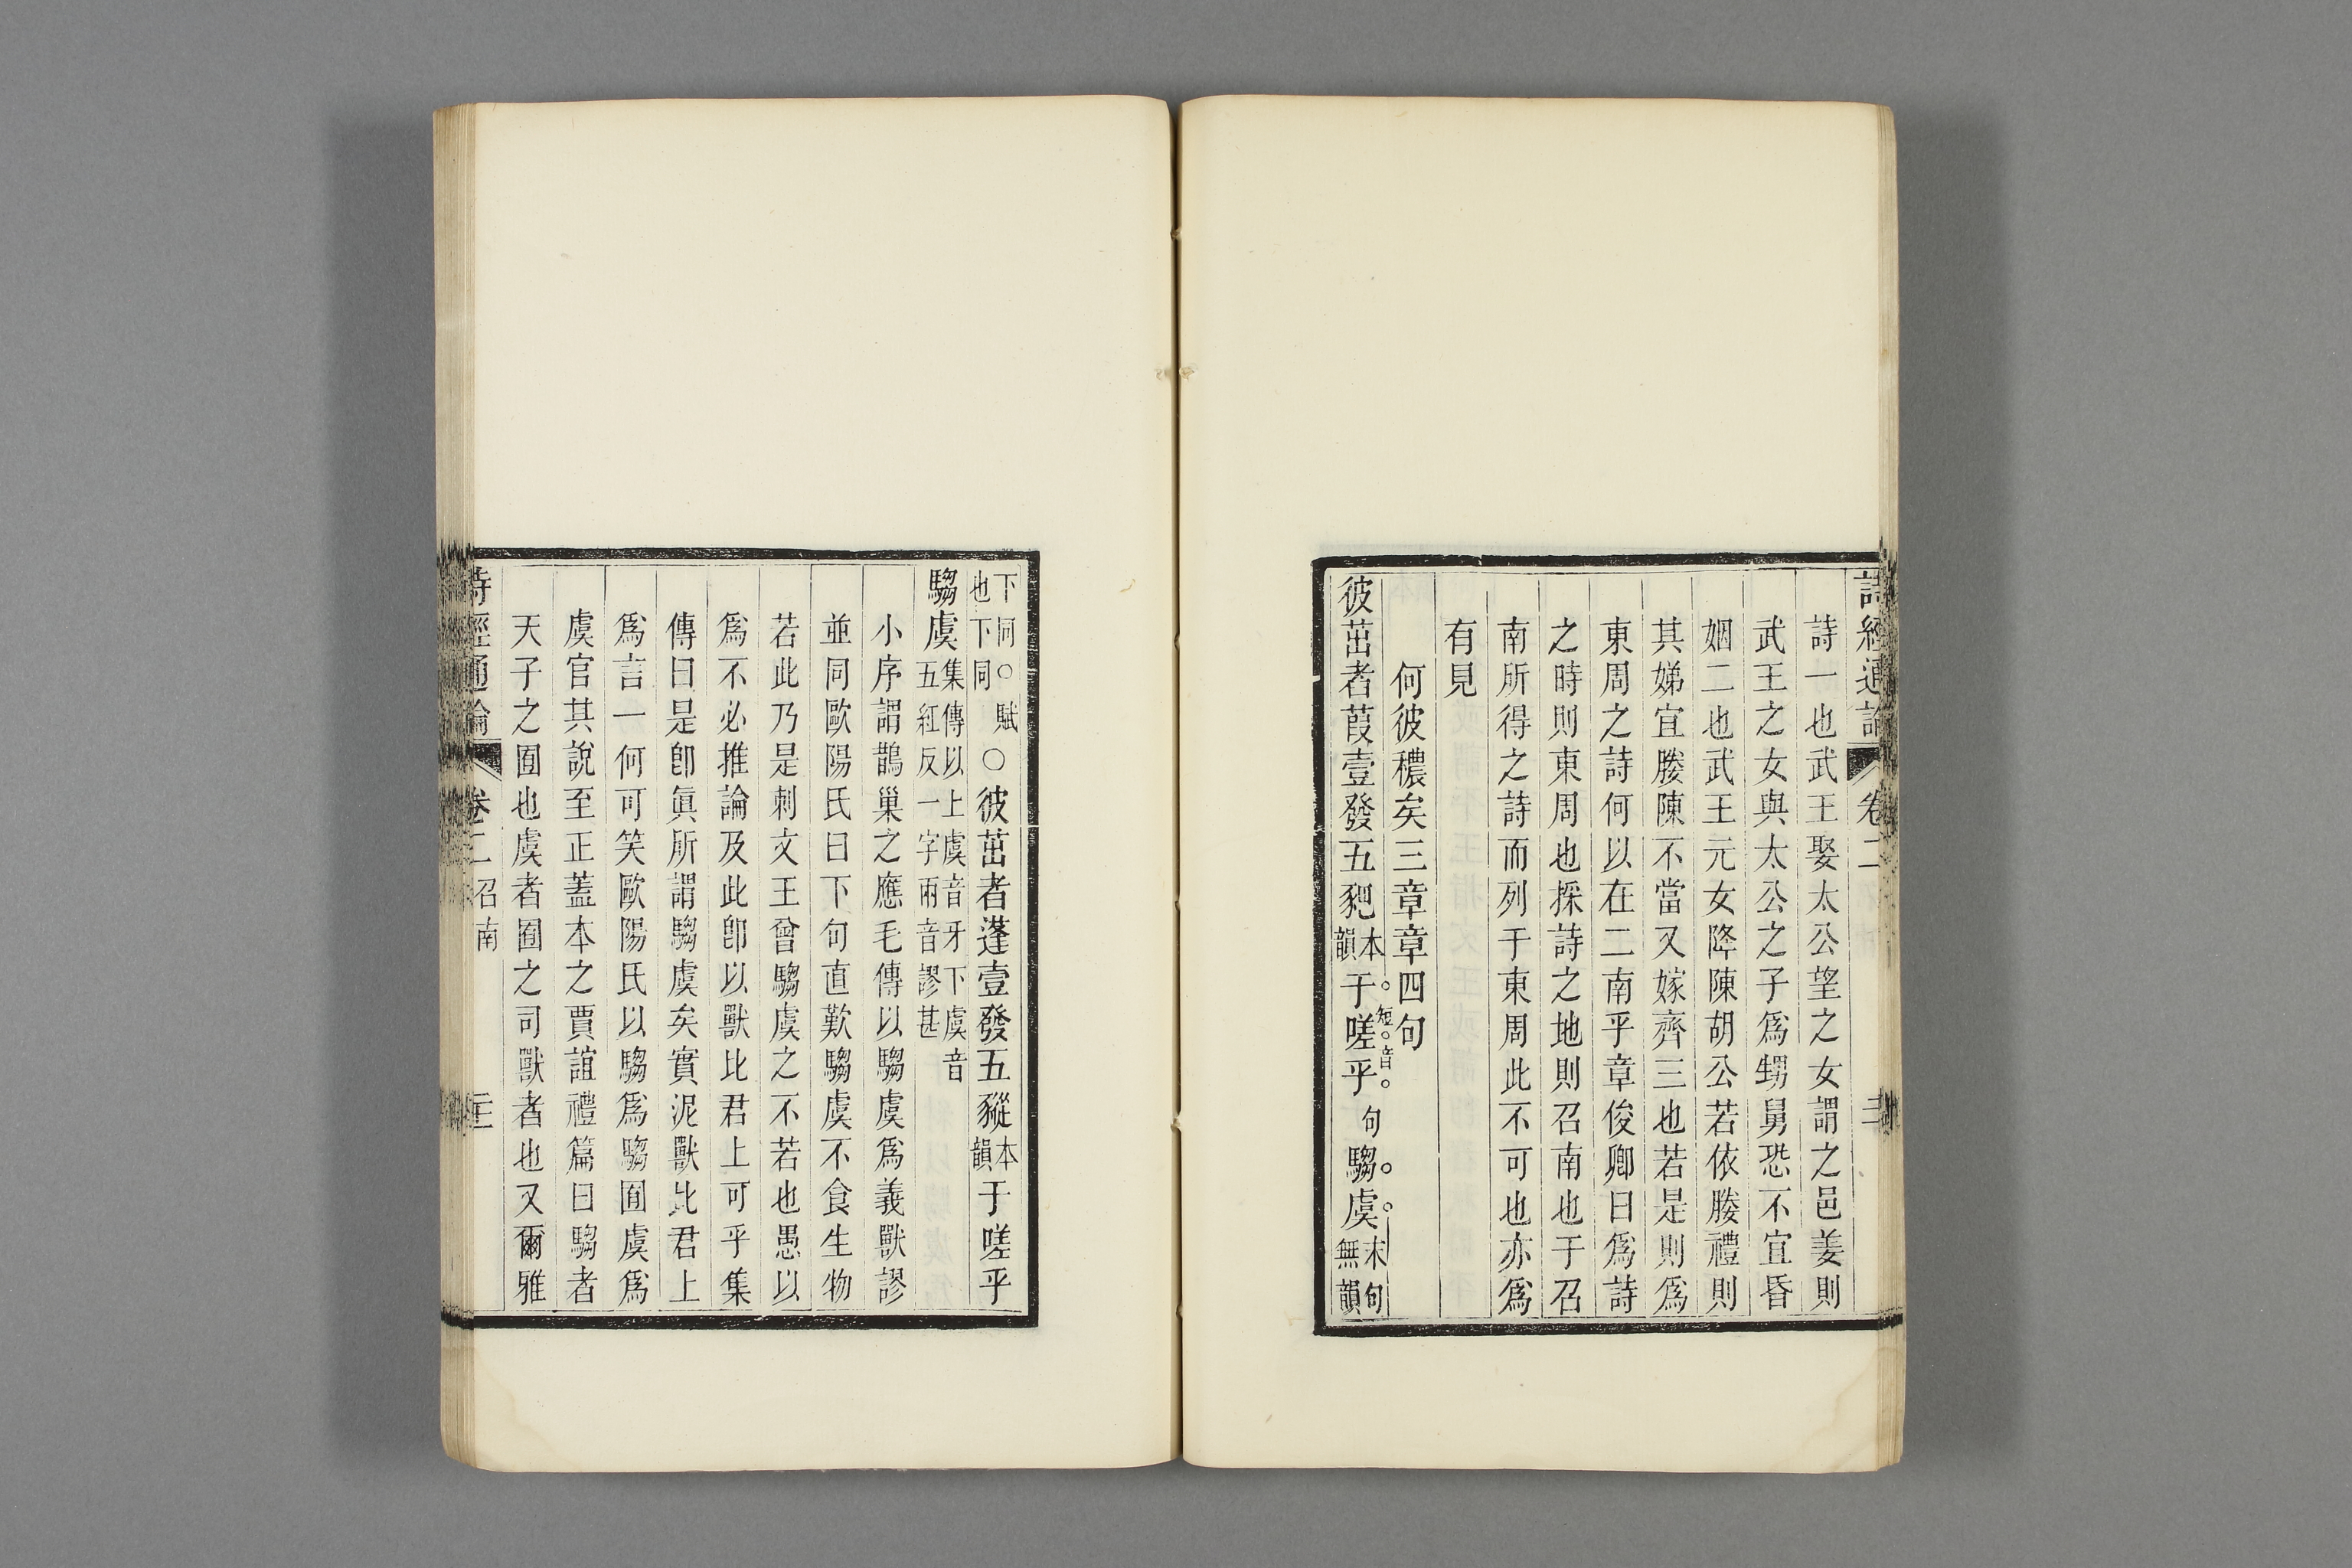 詩經通論 卷二
詩一也武王娶太公望之女謂之邑姜則
武王之女與太公之子爲甥舅恐不宜昏
姻二也武王元女降陳胡公若依媵禮則
其娣宜媵陳不當又嫁齊三也若是則爲
東周之詩何以在二南乎章俊卿曰爲詩
之時則東周也採詩之地則召南也于召
南所得之詩而列于東周此不可也亦爲
有見
何彼穠矣三章章四句
彼茁者葭壹發五豝本韻于嗟乎句騶虞末句無韻
短音
下同○賦也下同○彼茁者蓬壹發五豵本韻于嗟乎
騶虞集傳以上虞音牙下虞音五紅反一字兩音謬甚
小序謂鵲巢之應毛傳以騶虞爲義獸謬
並同歐陽氏曰下句直歎騶虞不食生物
若此乃是刺文王曾騶虞之不若也愚以
爲不必推論及此卽以獸比君上可乎集
傳曰是卽眞所謂騶虞矣實泥獸比君上
爲言一何可笑歐陽氏以騶爲騶囿虞爲
虞官其說至正蓋本之賈誼禮篇曰騶者
天子之囿也虞者囿之司獸者也又爾雅
詩經通論 卷二 召南